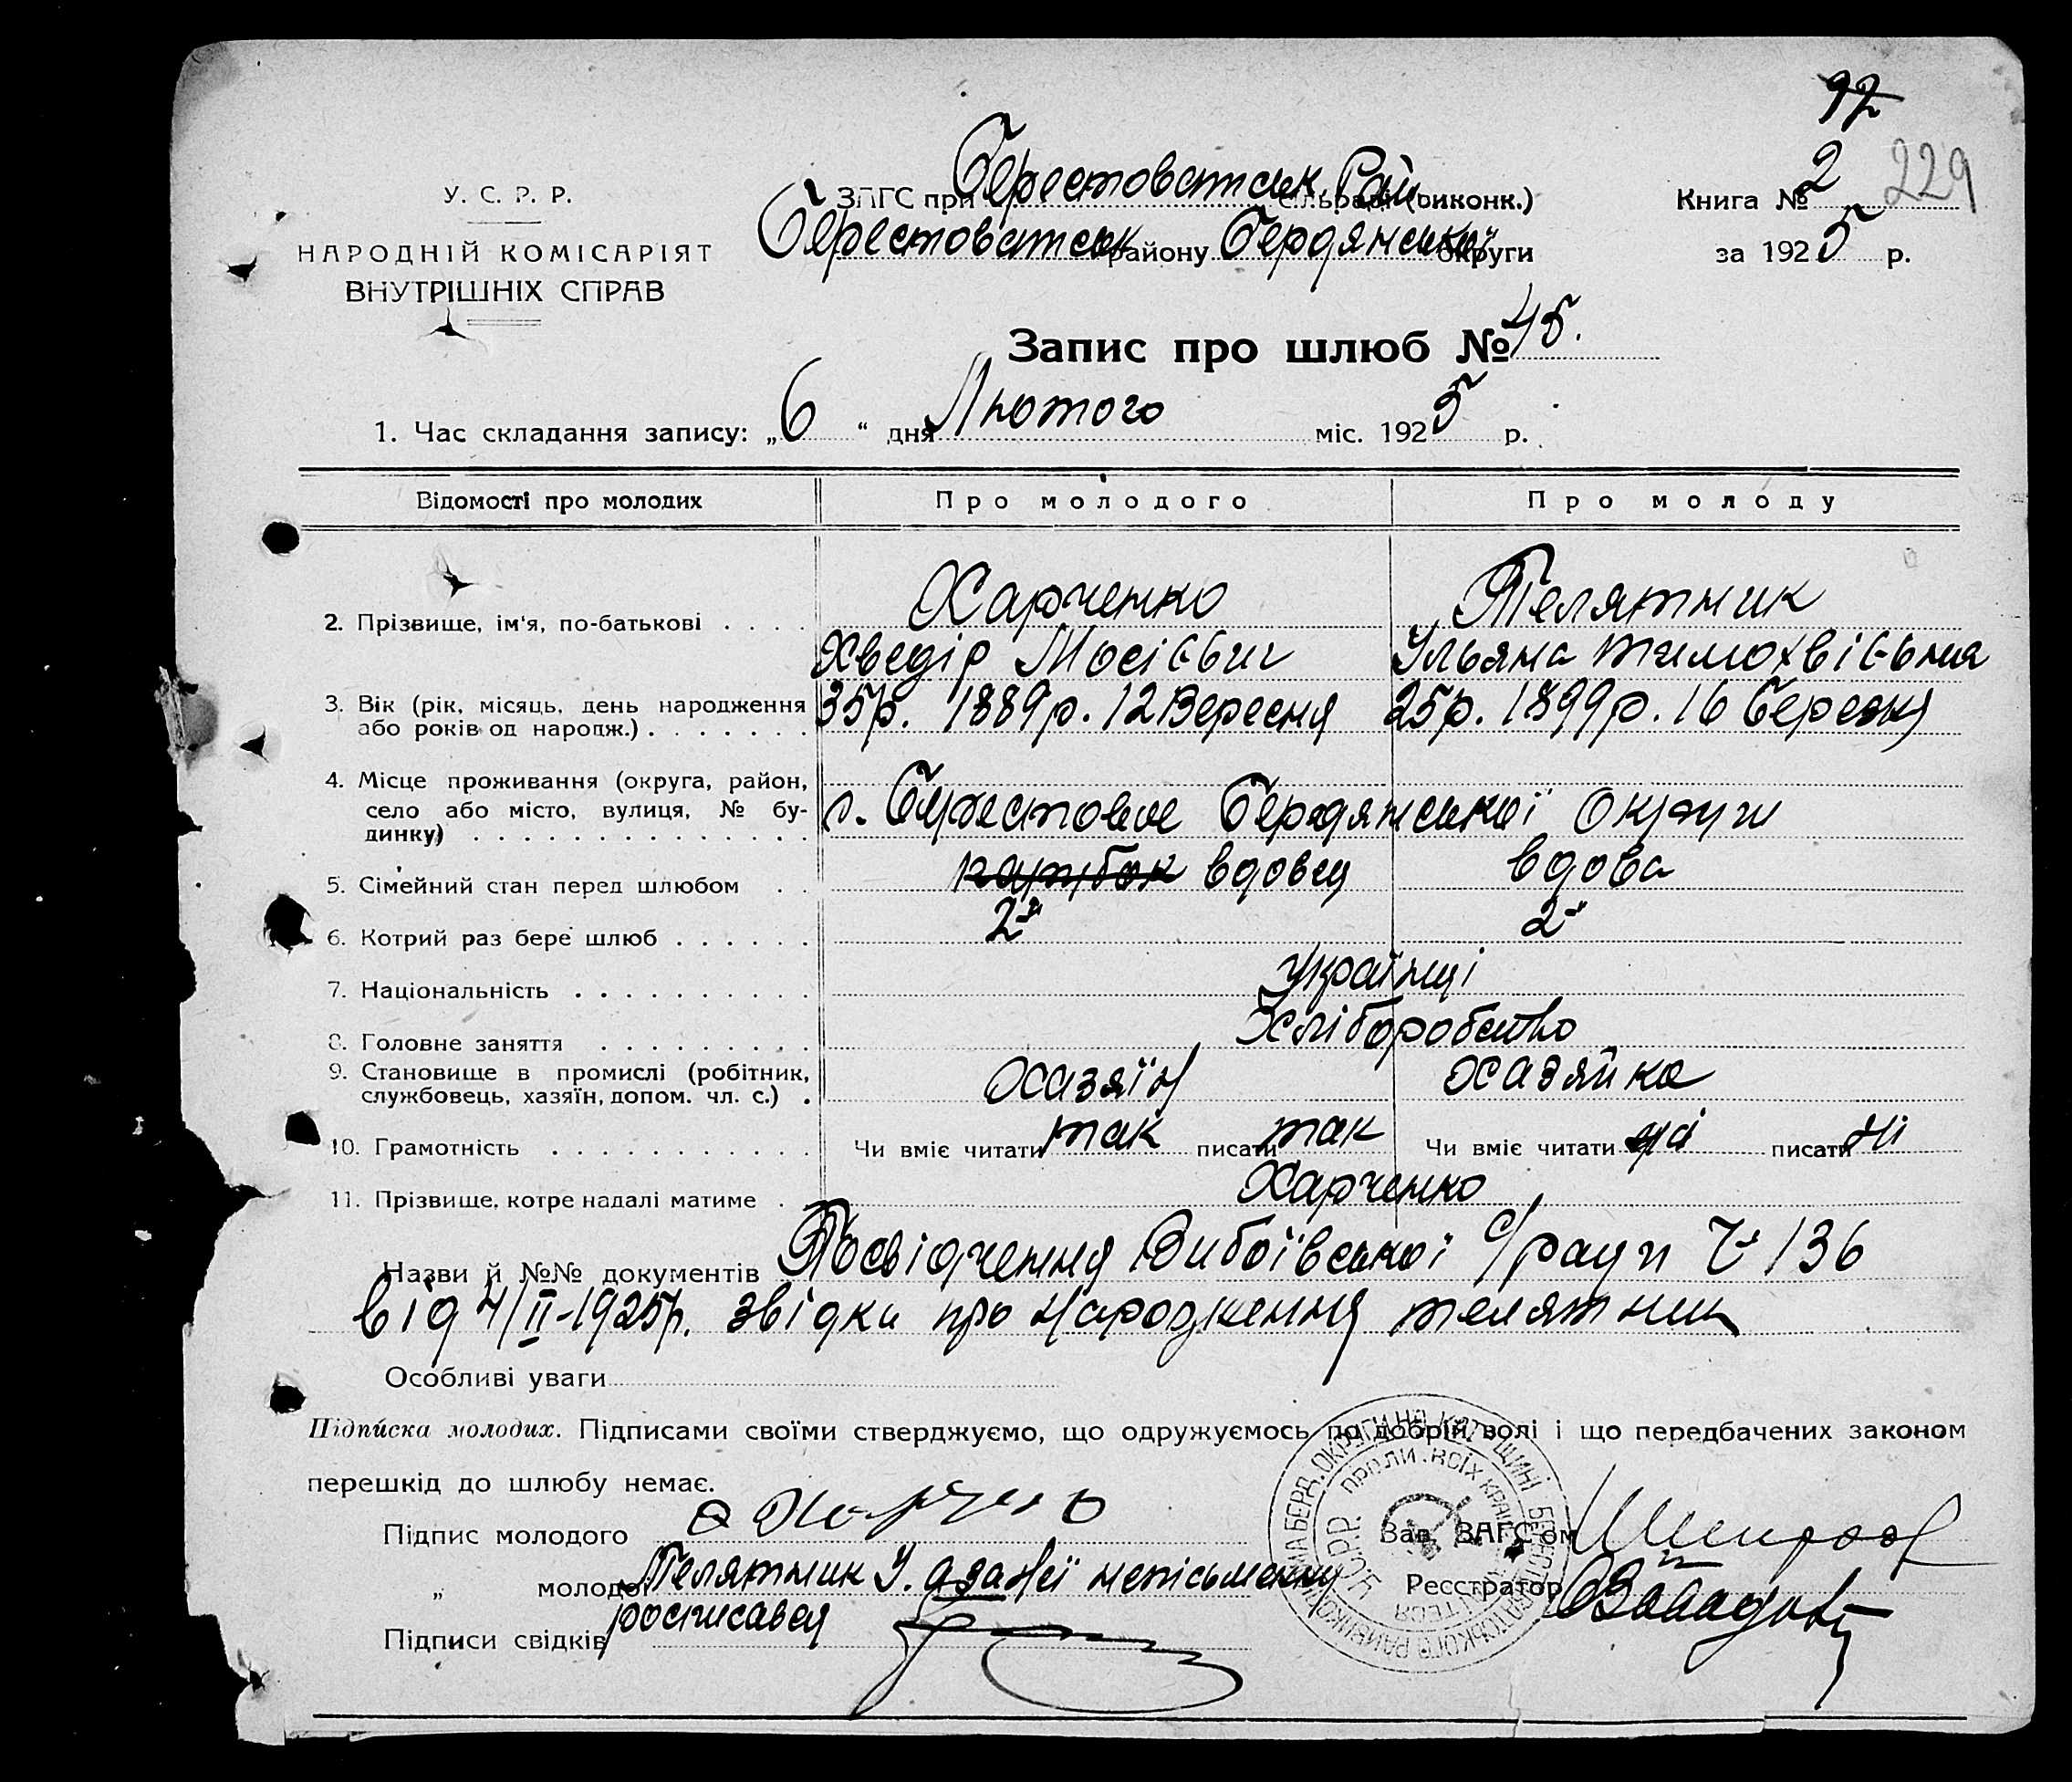 97
У. С. Р. Р.
НАРОДНІЙ КОМІСАРІЯТ
ВНУТРІШНІХ СПРАВ
ЗАГС при Берестоватськ Рай сільраді (виконк.)
Берестоватськ району Бердянської округи
Книга № 2 229
за 1925 р.
Запис про шлюб № 45.
1. Час складання запису: „6“ дня Лютого міс. 1925 р.
Відомості про молодих Про молодого Про молоду
2. Прізвище, ім'я, по-батькові . . . . Харченко Телятник
Хведір Мосієвич Ульяна Тимохвієвна
3. Вік (рік, місяць, день народження 35р. 1889р. 12 Вересня 25р. 1899р. 16 березня
або років од народж.) . . . . . . .
4. Місце проживання (округа, район,
село або місто, вулиця, № бу- с. Берестовое Бердянської Округи
динку) . . . . . . . . . . . . . .
5. Сімейний стан перед шлюбом . . парубок вдовец вдова
6. Котрий раз бере шлюб . . . . . . 2й 2й
7. Національність . . . . . . . . . . Українці
8. Головне заняття . . . . . . . . . Хліборобство
9. Становище в промислі (робітник, хазяїн хазяйка
службовець, хазяїн, допом. чл. с.) .
10. Грамотність . . . . . . . . . . . Чи вміє читати так писати так Чи вміє читати ні писати ні
11. Прізвище, котре надалі матиме . . Харченко
Назви й №№ документів Посвідчення Вибоївської с/ради Ч 136
від 4/II-1925р. звідки про народження телятник
Особливі уваги
Підписка молодих. Підписами своїми стверджуємо, що одружуємось по добрій волі і що передбачених законом
перешкід до шлюбу немає.
Підпис молодого Харченко
„ молодої Телятник У. а за неї неписьменну
росписався
Підписи свідків
Зав. ЗАГС'ом
Реєстратор
У.С.Р.Р. ПРОЛИ. ВСІХ КРАЇН